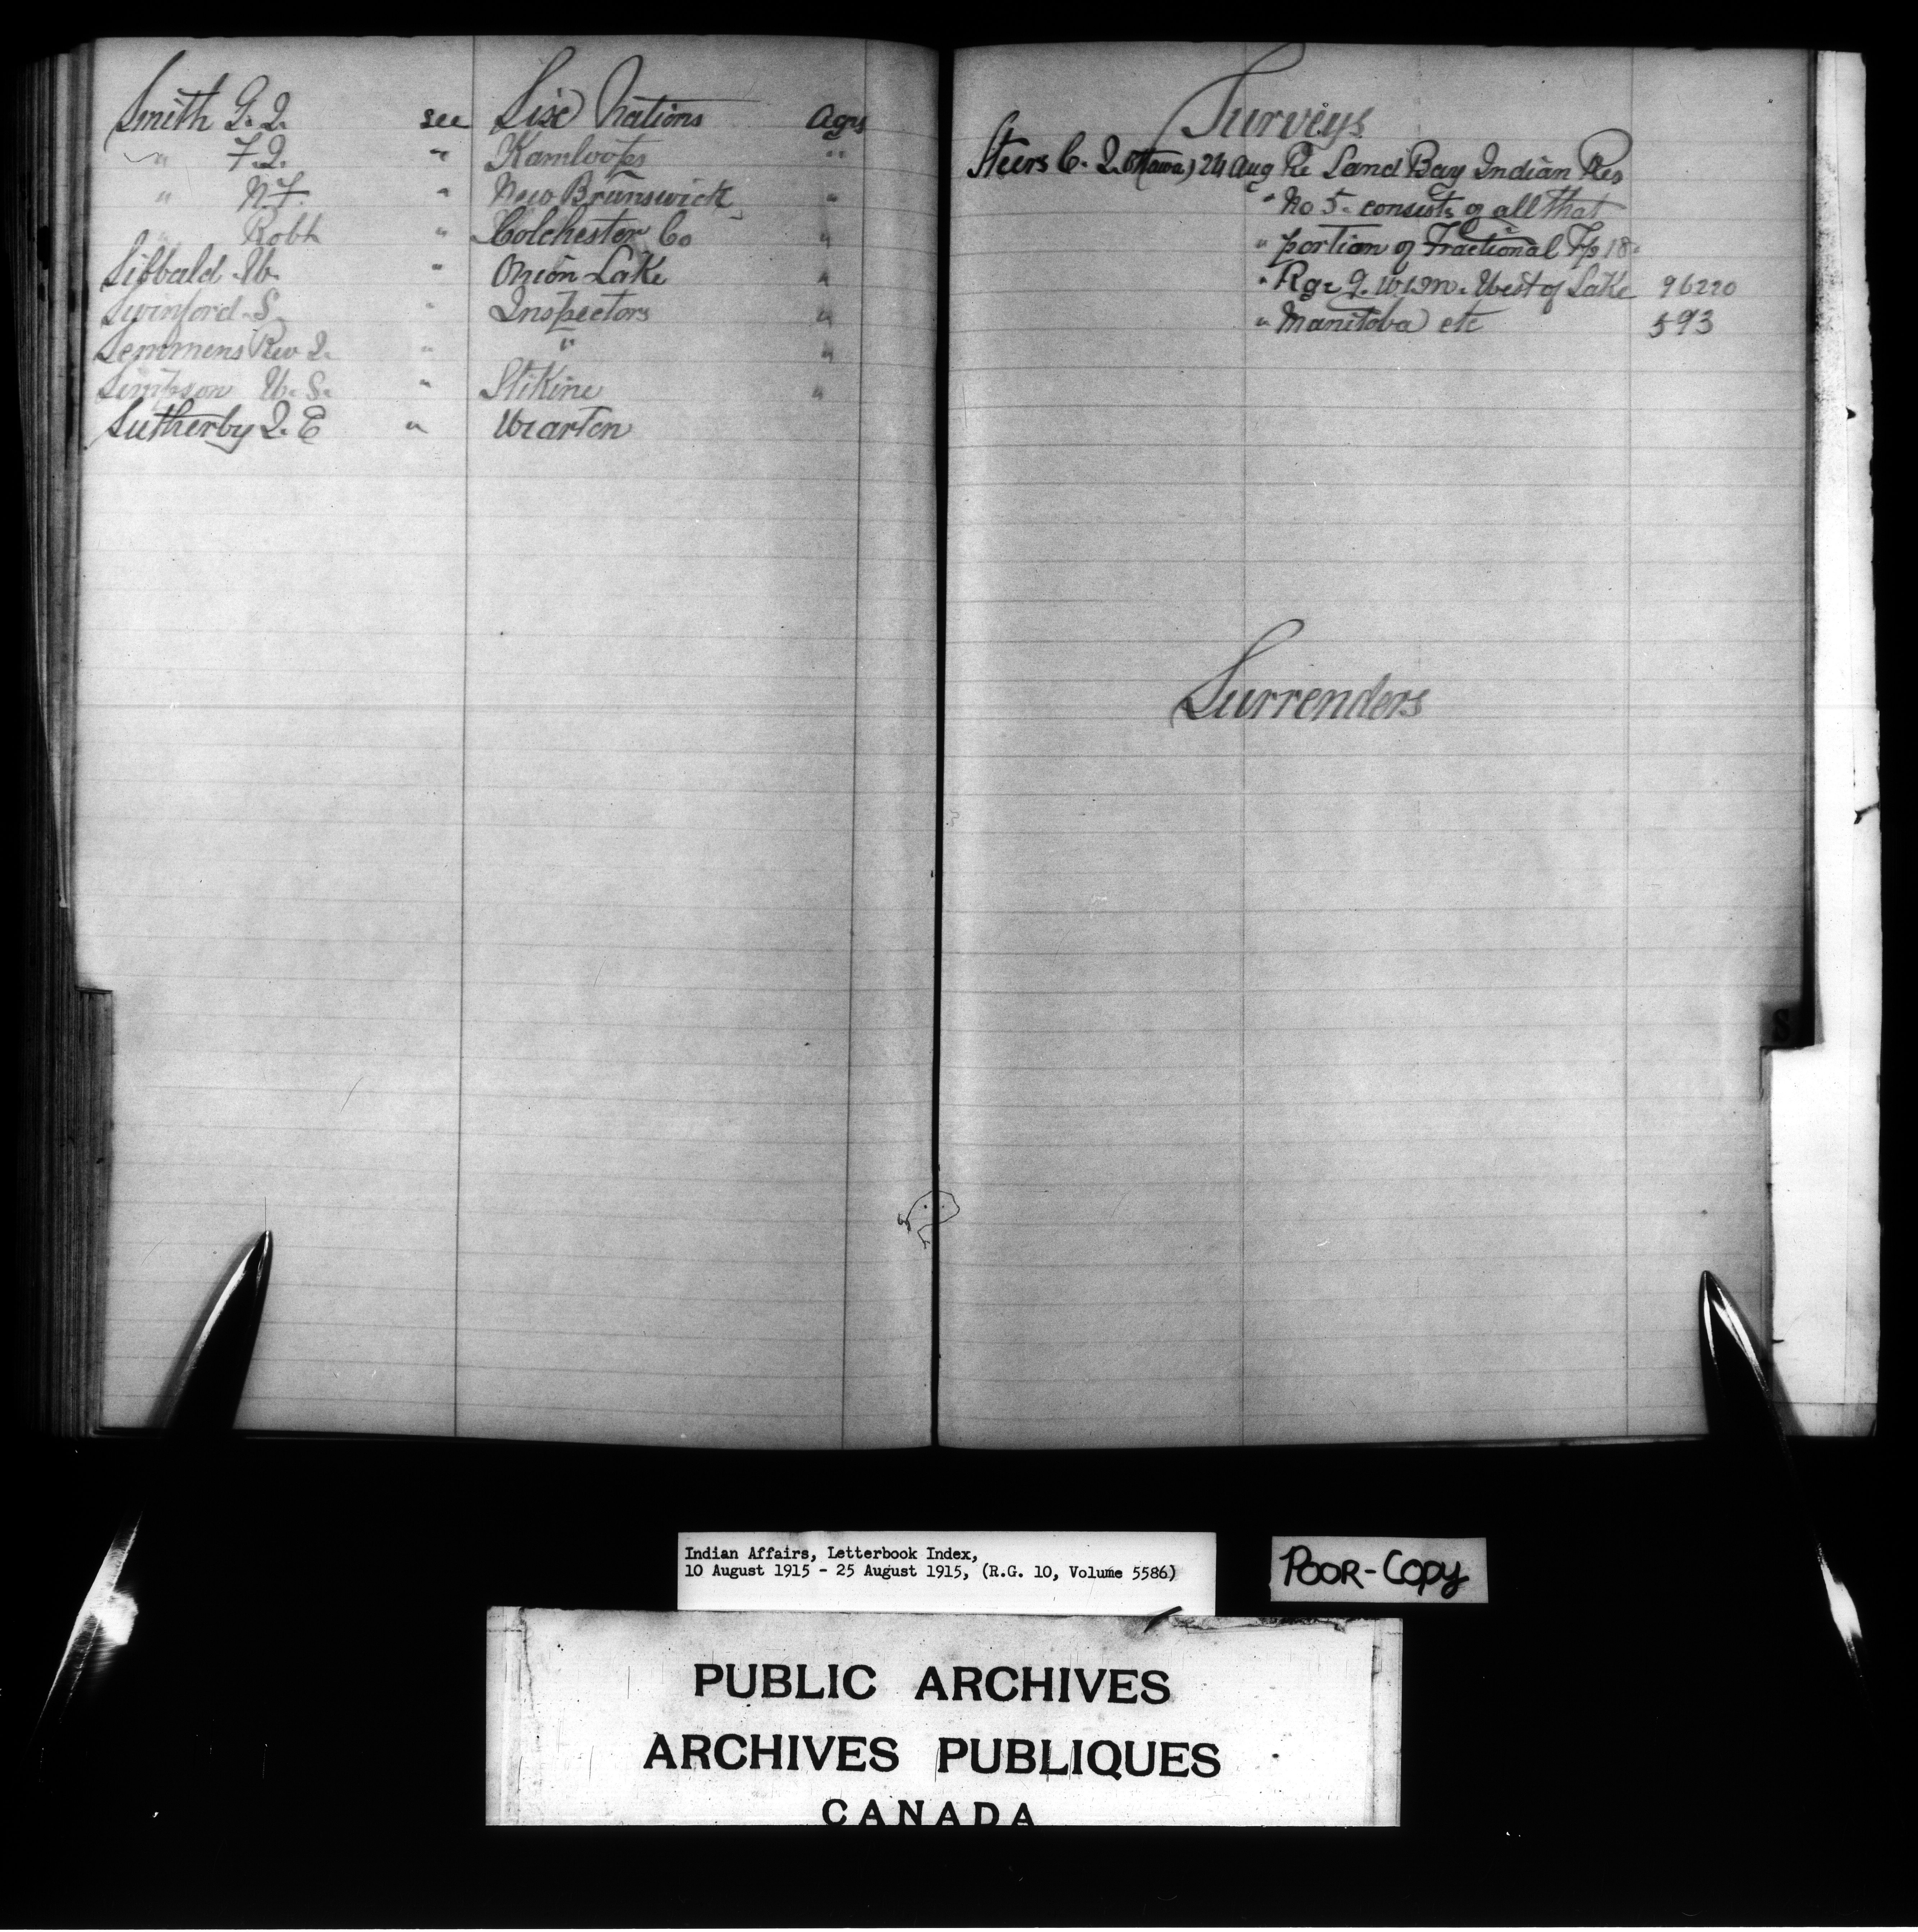 Smith G. J. see Six Nations Agcs
" F. J. " Kamloops "
" N. F. " New Brunswick "
" Robt " Colchester Co "
Sibbald W. " Onion Lake "
Swinford S. " Inspectors "
Semmens Rev J. " " "
Simpson W. S. " Stikine "
Sutherby J. E " Wiarton
Surveys
Steers C. J. Ottawa) 24 Aug Re Sand Bay Indian Res
" No 5. consists of all that
" portion of Fractional Tp 18.
" Rge 9. W1M. West of Lake 96220
" Manitoba etc 593
Surrenders
S
Indian Affairs, Letterbook Index,
10 August 1915 - 25 August 1915, (R.G. 10, Volume 5586)
POOR-COPY
PUBLIC ARCHIVES
ARCHIVES PUBLIQUES
CANADA